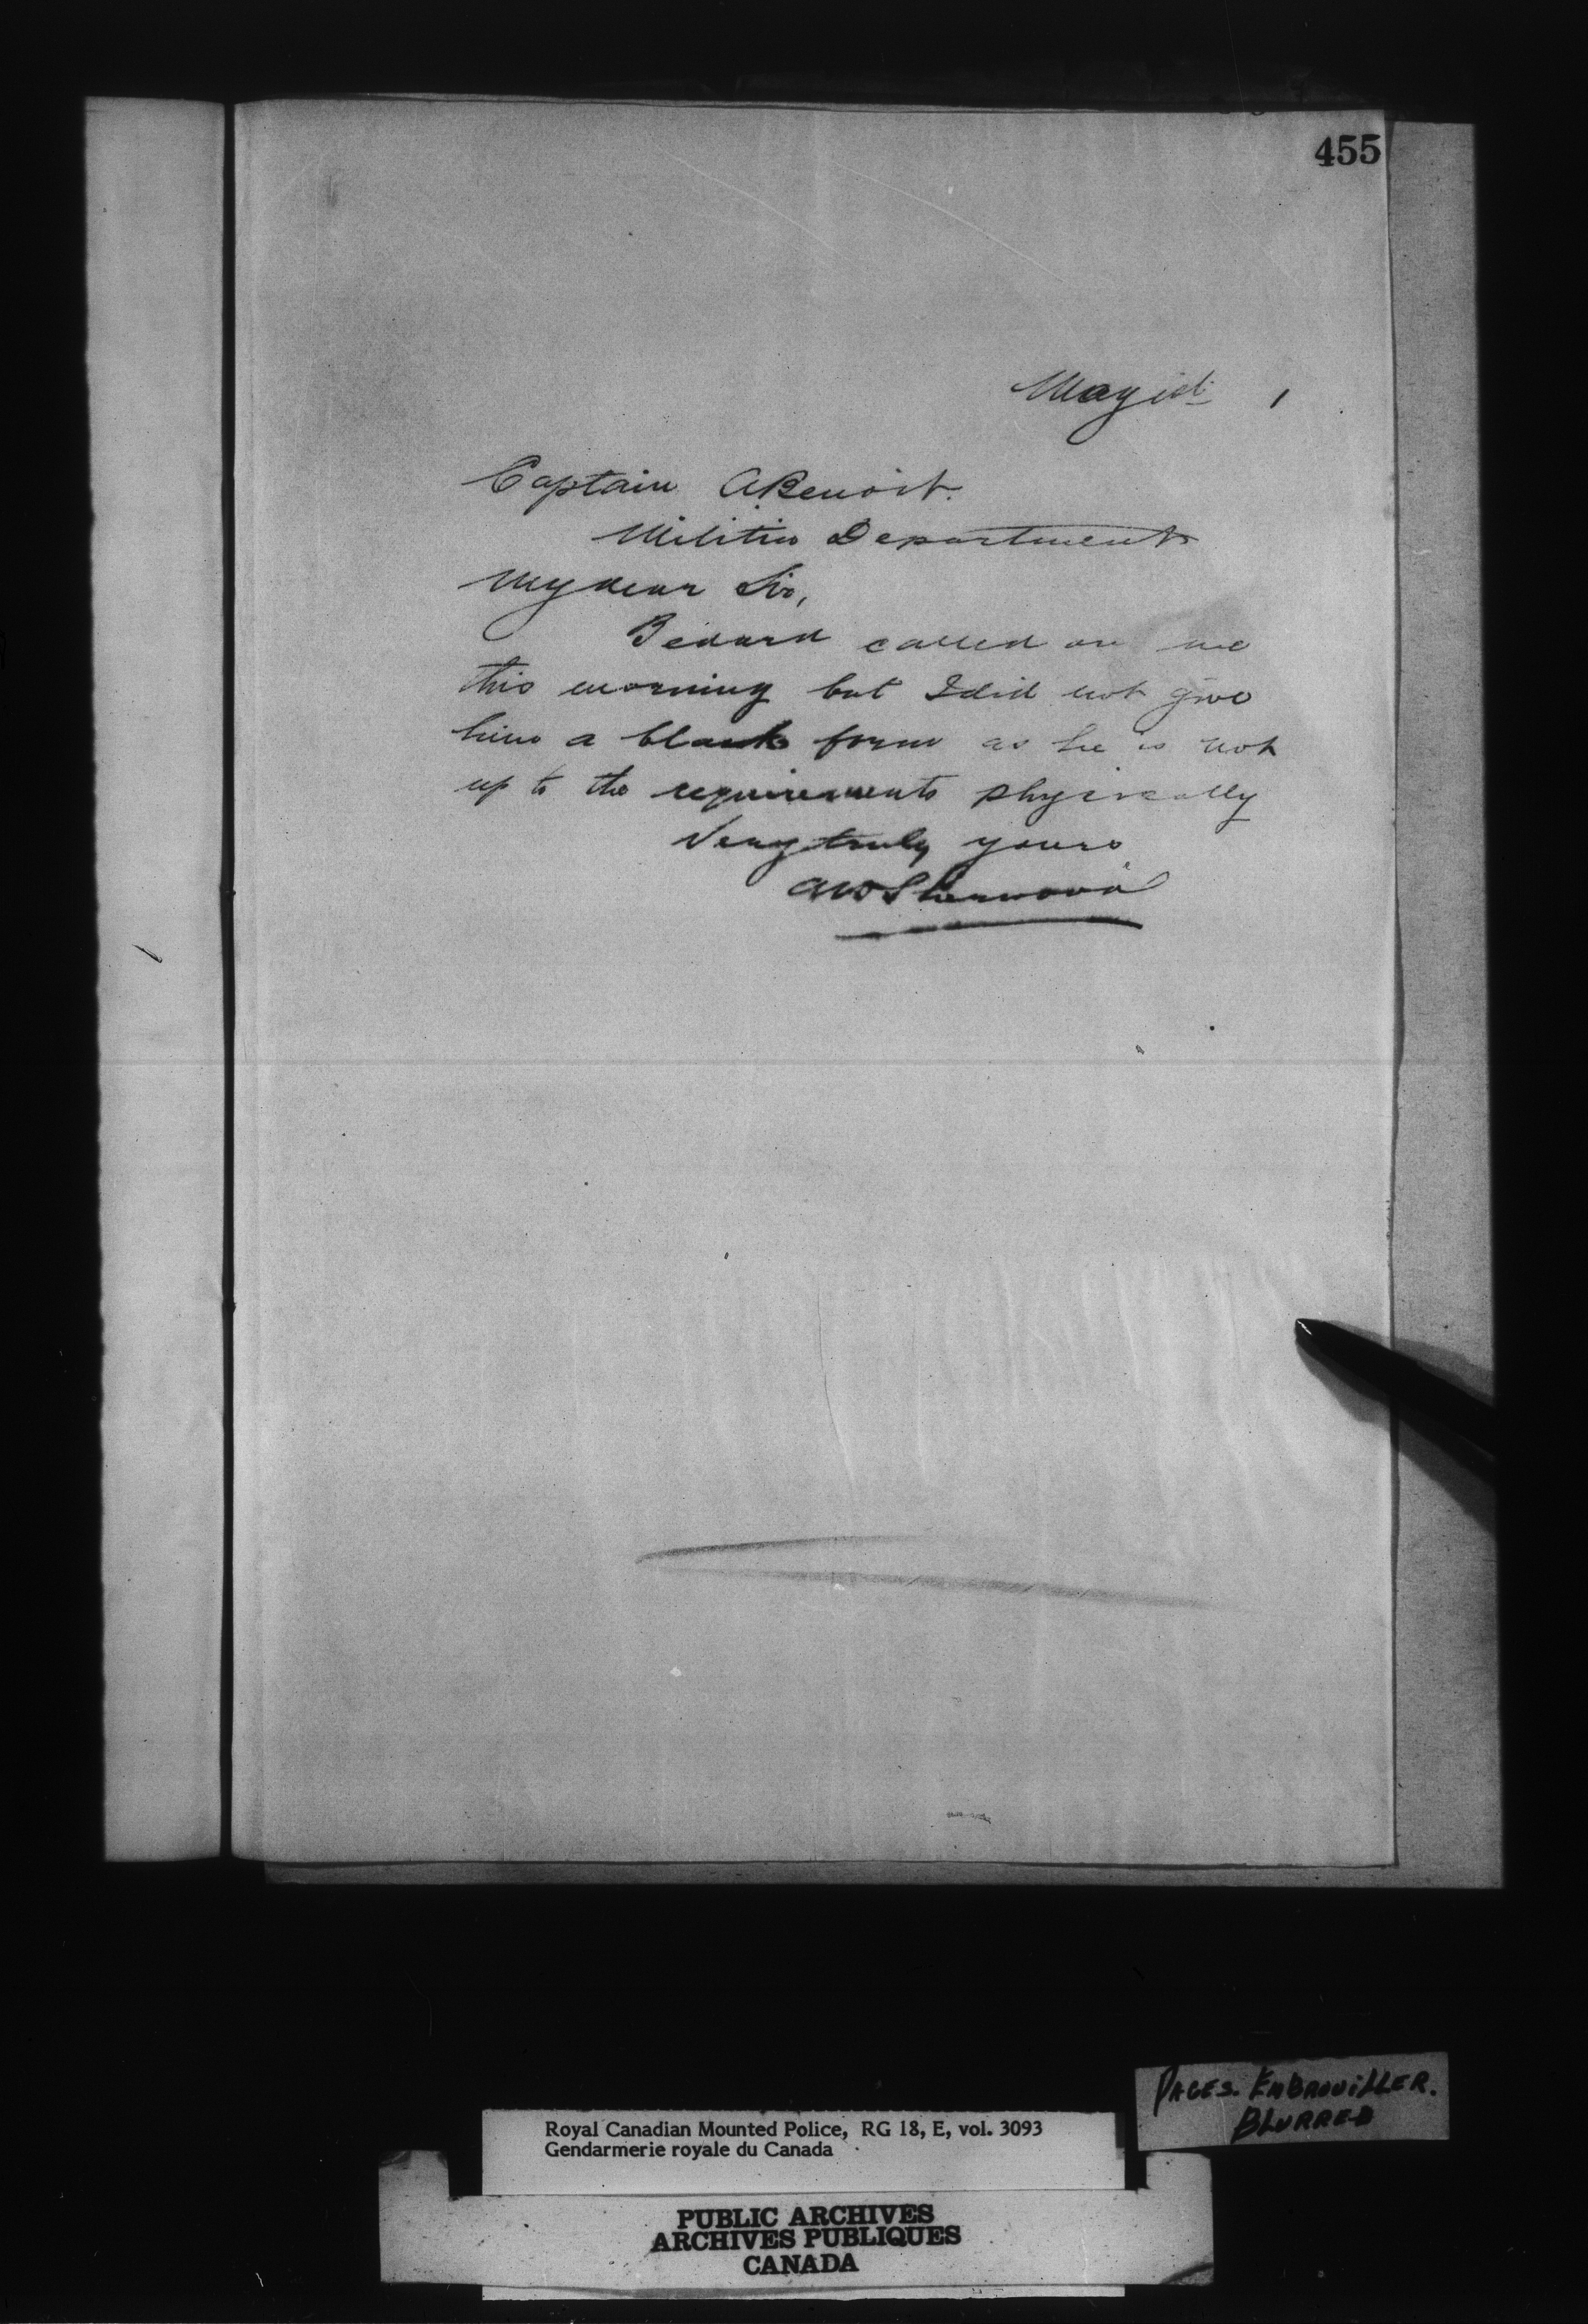 455
May 1st 1
Captain A Benoit.
Militia Department
My dear Sir,
Bedard called on me
this morning but I did not give
him a blank form as he is not
up to the requirements physically
Very truly yours
AW Sherwood
PAGES. EMBROUILLER.
BLURRED
Royal Canadian Mounted Police, RG 18, E, vol. 3093
Gendarmerie royale du Canada
PUBLIC ARCHIVES
ARCHIVES PUBLIQUES
CANADA